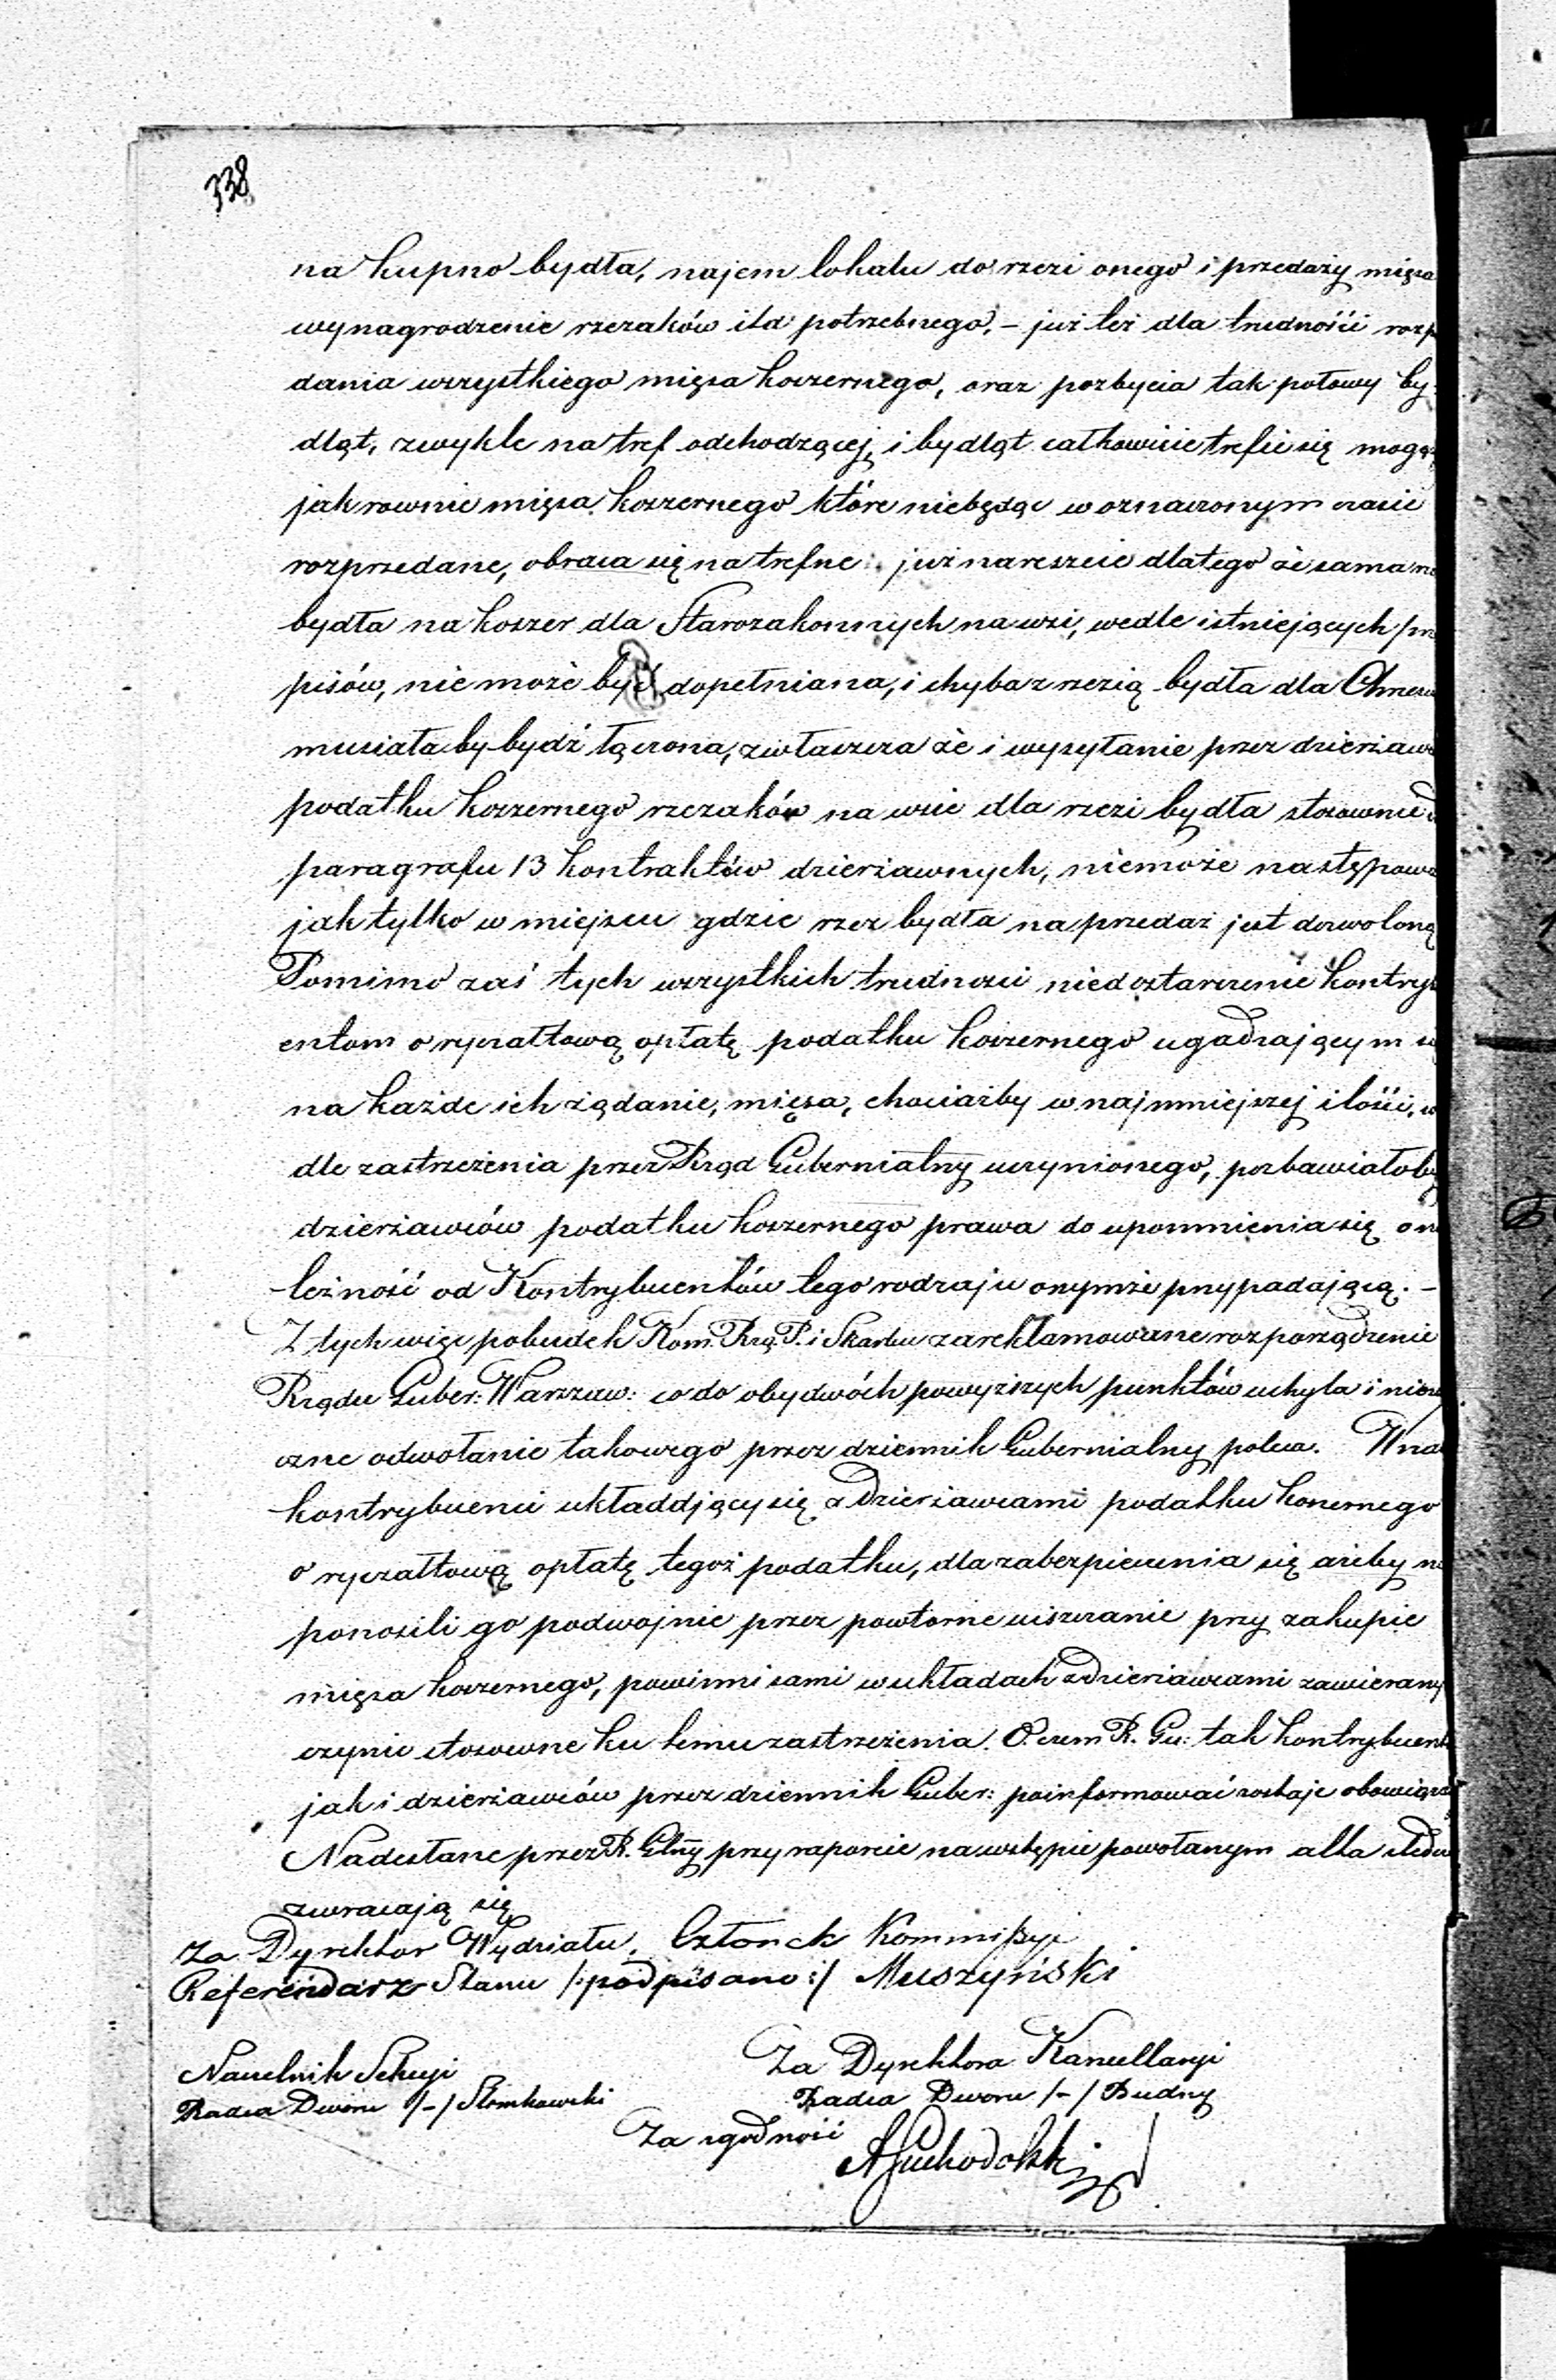 338
na kupno bydła, najem lokalu do rzezi onego i przedaży mięsa
wynagrodzenie rzezaków itd potrzebnego, – już też dla trudności rozp
dania wszystkiego mięsa koszernego, oraz pozbycia tak połowy by-
dląt, zwykle na tref odchodzącej, i bydląt całkowicie treficsię mogą
jak rownie mięsa koszernego które niebędąc w oznaczonym czasie
rozprzedane, obraca się na trefne: już nareszcie dlatego że sama
bydła na koszer dla Starozakonnych na wsi, wedle istniejących
pisów, nie może być dopełniana, i chyba z rzezią bydła dla Chrześ
musiałaby bydź łączona, zwłaszcza że i wysyłanie przez dzierżaw
podatku koszernego rzezaków na wsie dla rzezi bydła stosownie d
paragrafu 13 kontraktów dzierżawnych, niemoże następowa
jak tylko w miejscu gdzie rzez bydła na przedaż jest dozwoloną
Pomimo zaś tych wszystkich trudności niedostarczenie kontryb
entom o ryczałtową opłatę podatku koszernego ugadzającym si
na każde ich żądanie, mięsa, chociażby w najmniejszej ilości, w
dle zastrzeżenia przez Rząd Gubernialny uczynionego, pozbawiałoby
dzierżawców podatku koszernego prawa do upomnienia się o n
leżność od Kontrybuentów tego rodzaju onymże przypadającą. –
Z tych więc pobudek Kom. Rzą. P. i Skarbu zareklamowane rozporządzenie
Rządu Guber: Warszaw: co do obydwóch powyższych punktów uchyla i niezw
czne odwołanie takowego przez dziennik Gubernialny poleca. Wna
kontrybuenci układdjący się z Dzierżawcami podatku koszernego
o ryczałtową opłatę tegoż podatku, dla zabezpieczenia się ażeby n
ponosili go podwojnie przez powtorne uiszczanie przy zakupie
mięsa koszernego, powinni sami w układach z Dzierżawcami zawierany
czynic stosowne ku temu zastrzeżenia. O czem R. Gu: tak kontrybuent
jak i dzierżawców przez dziennik Guber: poinformować zostaje obowiąza
Nadesłane przez R. Glny przy raporcie na wstępie powołanym akta
zwracają się
Za Dyrektor Wydziału, Członek Kommißyi
Referendarz Stanu /: podpisano :/ Muszyński
Naczelnik Sekcyi
Radca Dworu /-/ Słomkowski
Za Dyrektora Kancellaryi
Radca Dworu /-/ Budny
Za zgodność